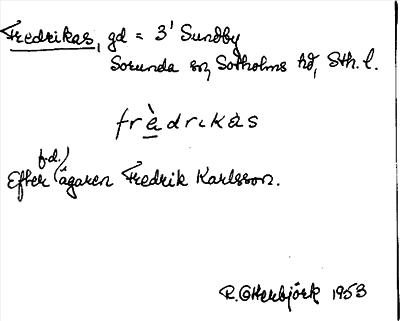 Fredrikas, gd = 3' Sundby
Sorunda sn, Sotholms hd, Sth. l.
frèdrikàs
f.d.)
Efter ägaren Fredrik Karlsson.
R. Otterbjörk 1953